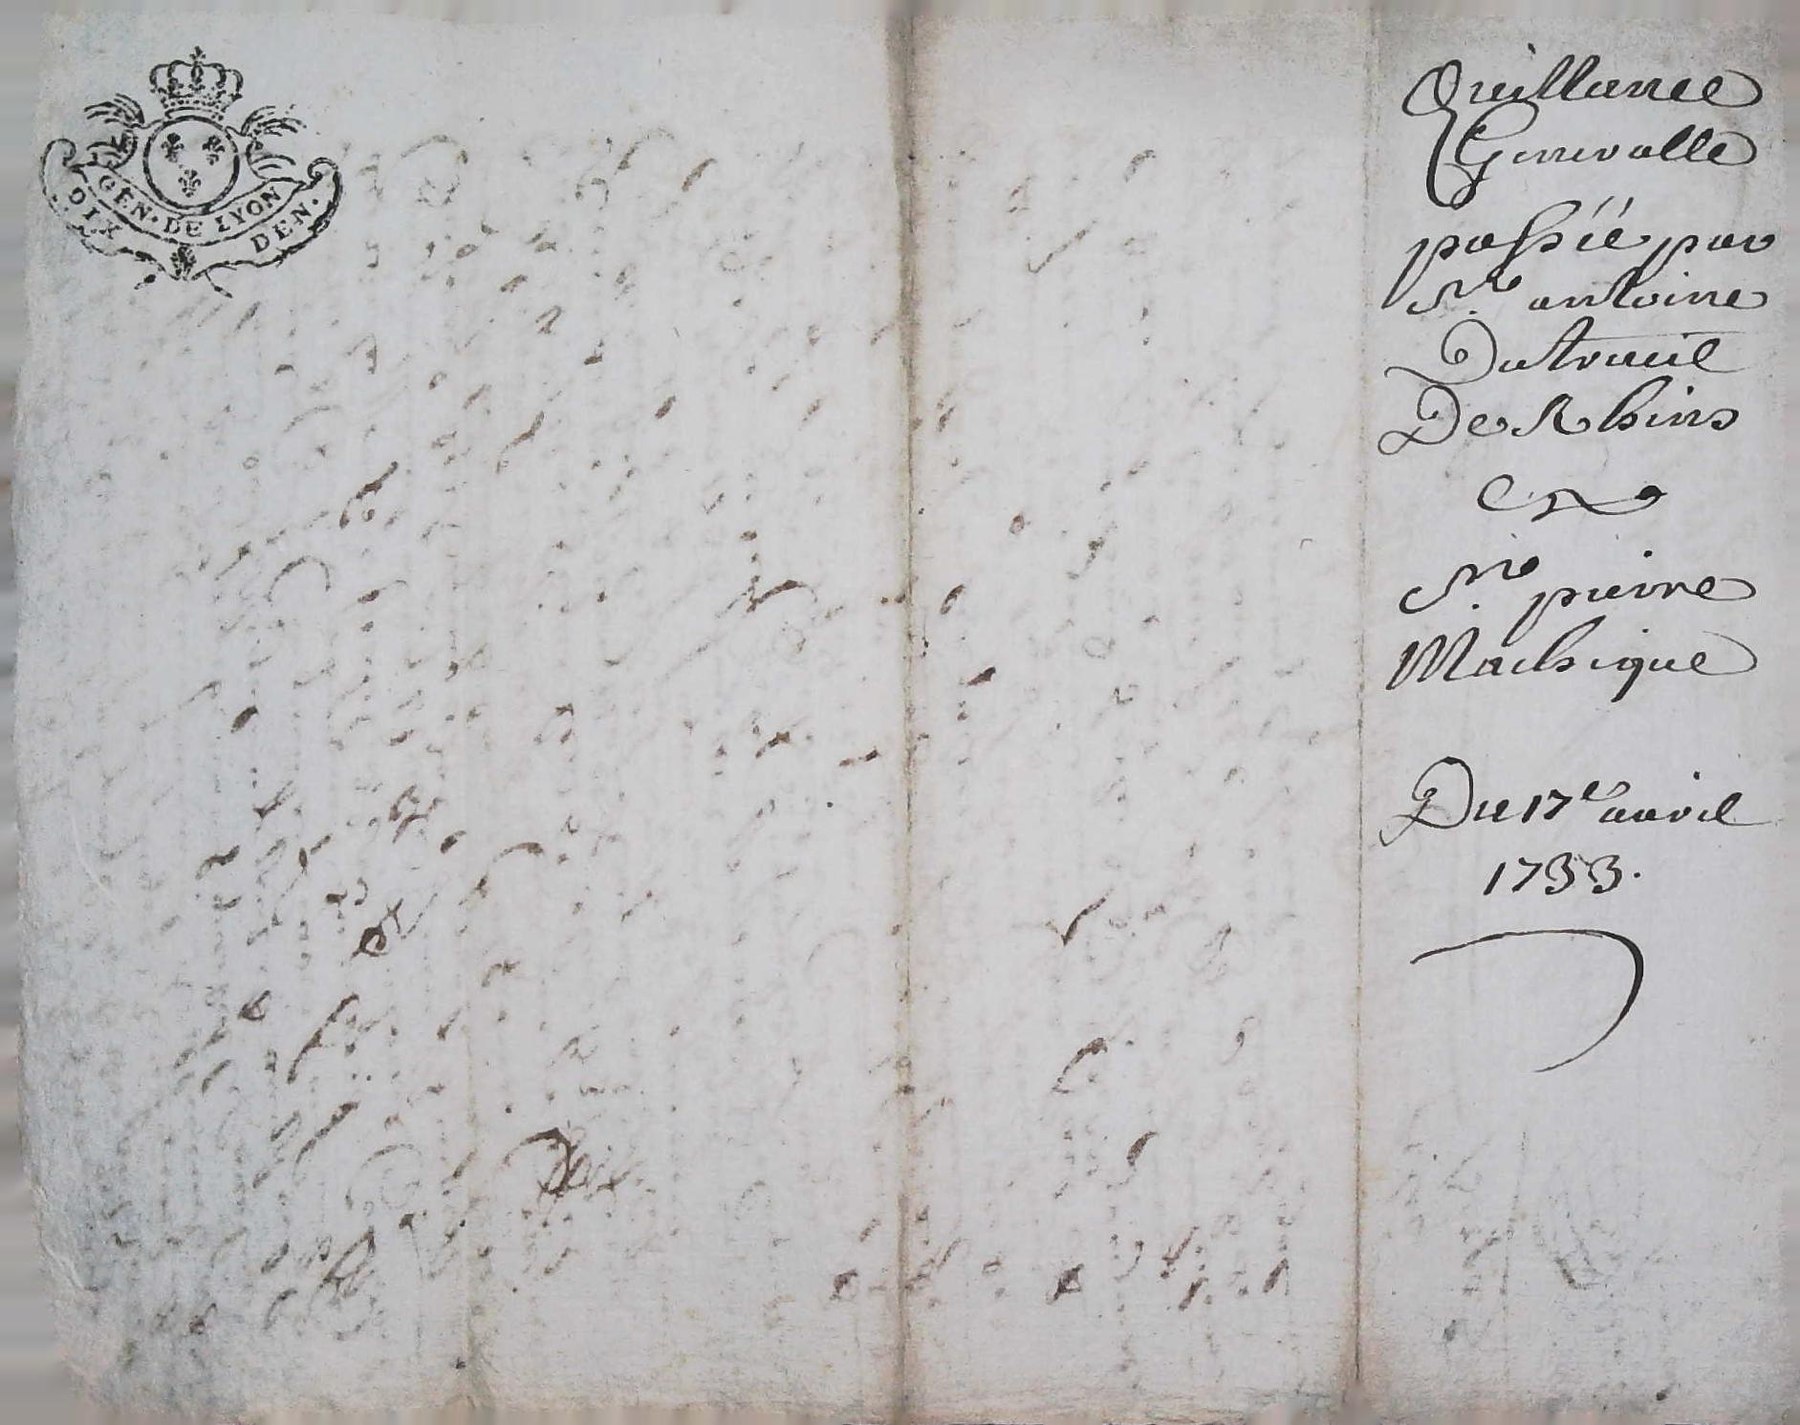 GEN. DE LYON
DIX DEN.
Quittance
Generalle
passéé par
Sr. antoine
Dutreuil
De Rhins
a
Sr. pierre
Machique
Du 17e avril
1733.